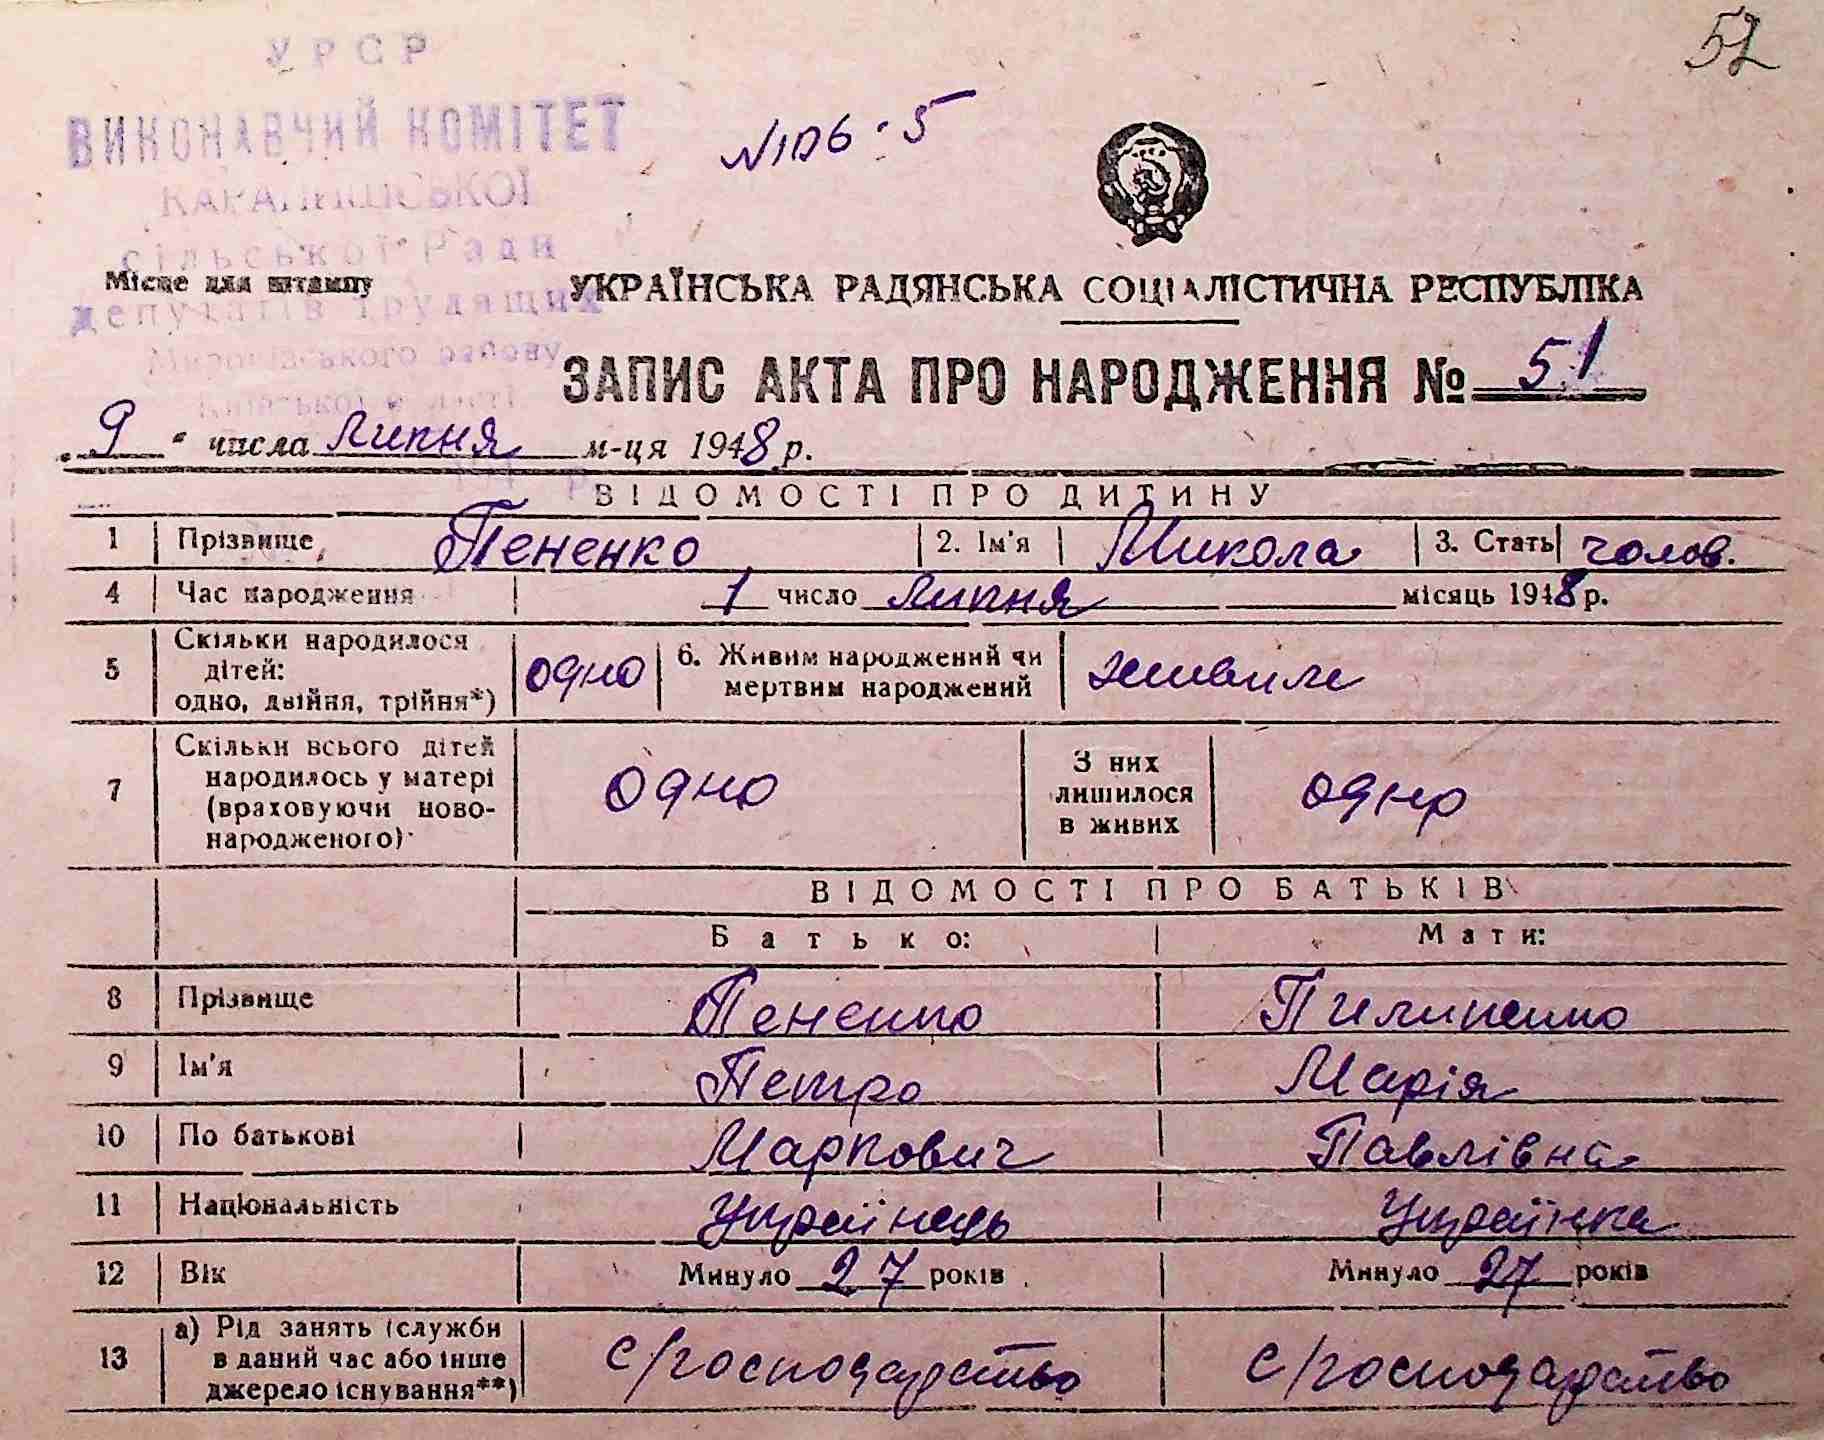 52
У Р С Р
ВИКОНАВЧИЙ КОМІТЕТ
№106-5
сільської Ради
Місце для штампу
депутатів трудящих
УКРАЇНСЬКА РАДЯНСЬКА СОЦІАЛІСТИЧНА РЕСПУБЛІКА
Миронівського району
Київської області
ЗАПИС АКТА ПРО НАРОДЖЕННЯ № 51
„9" числа Липня м-ця 1948 р.
ВІДОМОСТІ ПРО ДИТИНУ
1 Прізвище Пененко 2. Ім'я Микола 3. Стать чолов.
4 Час народження 1 число Липня місяць 1948 р.
5 Скільки народилося дітей: одно, двійня, трійня*) одно 6. Живим народжений чи мертвим народжений живим
7 Скільки всього дітей народилось у матері (враховуючи ново-народженого) одно З них лишилося в живих одно
ВІДОМОСТІ ПРО БАТЬКІВ
Батько: Мати:
8 Прізвище Пененко Пилипенко
9 Ім'я Петро Марія
10 По батькові Маркович Павлівна
11 Національність Українець Українка
12 Вік Минуло 27 років Минуло 27 років
13 а) Рід занять (служби в даний час або інше джерело існування**) с/господарство с/господарство